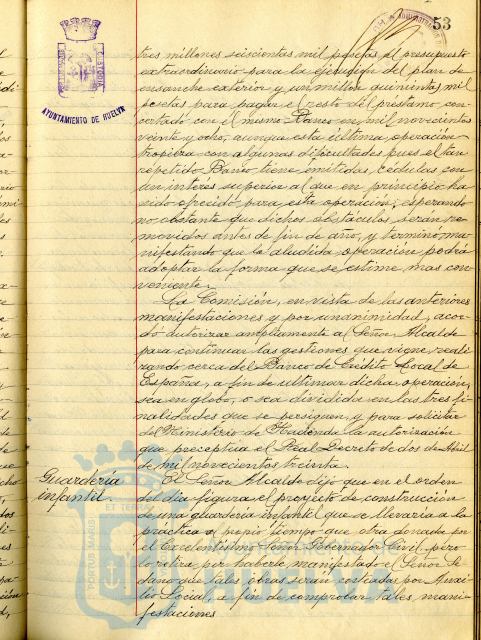 53
AYUNTAMIENTO DE HUELVA
tres millones seiscientas mil pesetas, el presupuesto
extraordinario para la ejecución del plan de
ensanche exterior y un millon quinientas mil
pesetas para pagar el resto del préstamo con-
certado con el mismo Banco en mil novecientos
veinte y ocho, aunque esta última operación
tropieza con algunas dificultades pues el tan
repetido Banco tiene emitidas cédulas con
un interés superior al que en principio ha
sido ofrecido para esta operación; esperando
no obstante que dichos obstáculos serán re-
movidos antes de fin de año, y terminó ma-
nifestando que la aludida operación podrá
adoptar la forma que se estime mas con-
veniente.
La Comisión, en vista de las anteriores
manifestaciones y por unanimidad, acor-
dó autorizar ampliamente al Señor Alcalde
para continuar las gestiones que viene reali-
zando cerca del Banco de Crédito Local de
España, a fin de ultimar dicha operación,
sea en globo, o sea dividida en las tres fi-
nalidades que se persiguen, y para solicitar
del Ministerio de Hacienda la autorización
que preceptúa el Real Decreto de dos de Abril
de mil novecientos treinta.
Guardería
infantil
El Señor Alcalde dijo que en el orden
del día figura el proyecto de construcción
de una guardería infantil que se llevaría a la
práctica al propio tiempo que otra donada por
el Excelentísimo Señor Gobernador Civil, pero
lo retira por haberle manifestado el Señor Se-
daño que tales obras serán costeadas por Auxi-
lio Social, a fin de comprobar tales mani-
festaciones
PORTUS MARIS
ET TERRAE
Ayuntamiento de
HUELVA